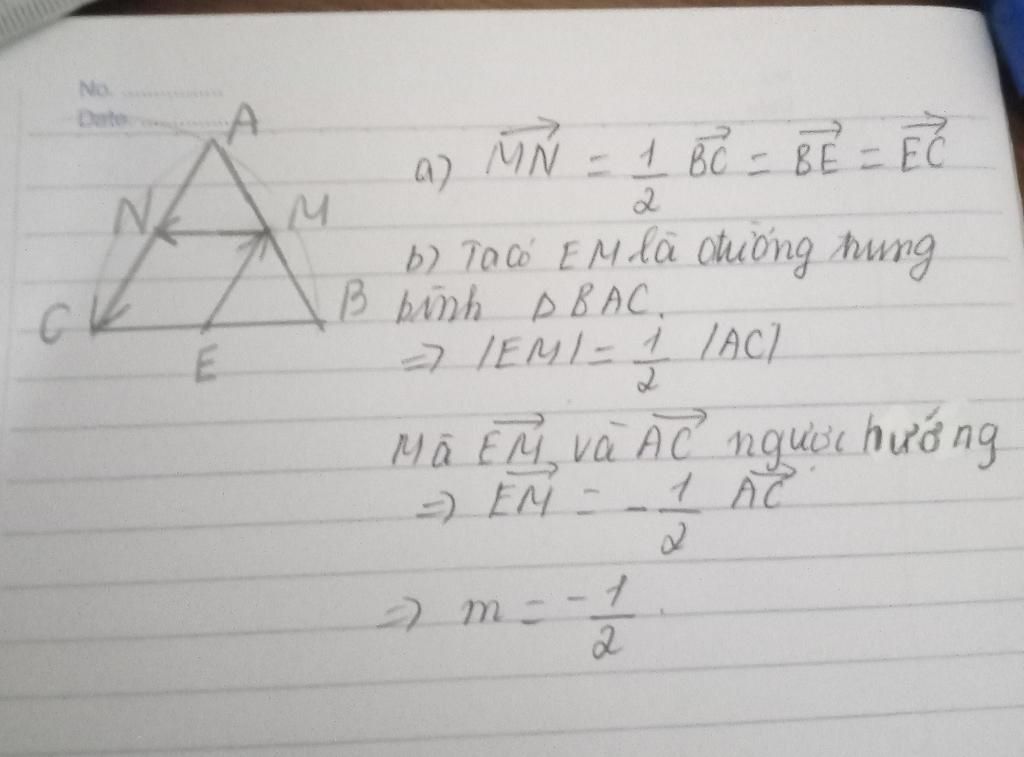 No. ................
Date. ................
A
N
M
C
B
E
a) $\overrightarrow{MN} = \frac{1}{2} \overrightarrow{BC} = \overrightarrow{BE} = \overrightarrow{EC}$
b) Ta có EM là đường trung
bình Δ BAC.
=> |EM| = $\frac{1}{2}$ |AC|
Mà $\overrightarrow{EM}$ và $\overrightarrow{AC}$ ngược hướng
=> $\overrightarrow{EM} = -\frac{1}{2} \overrightarrow{AC}$
=> m = $-\frac{1}{2}$.